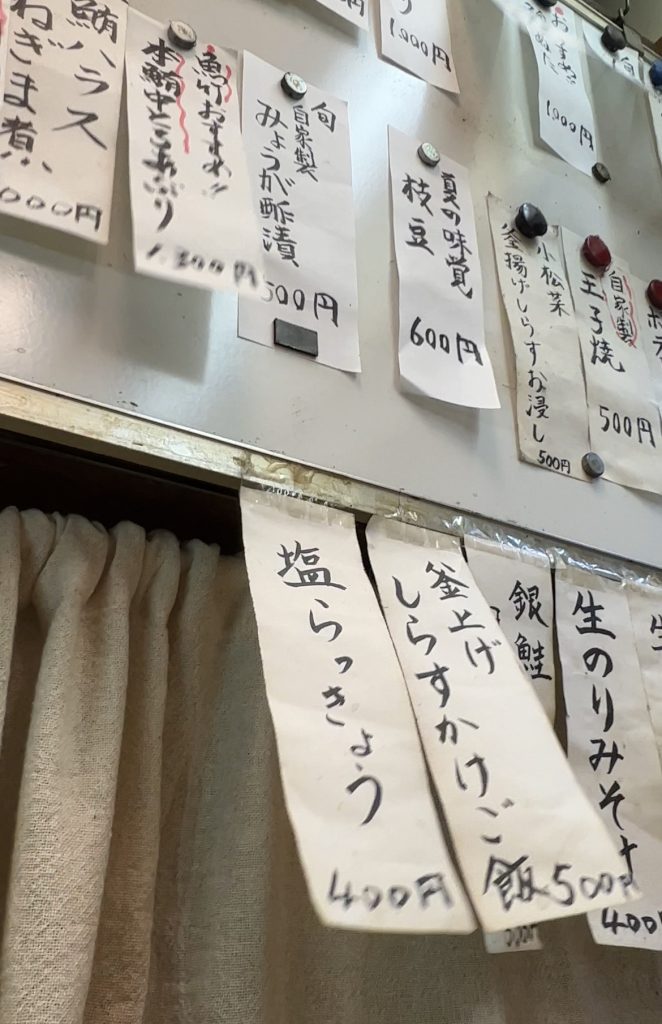 鮪ハラス
ねぎま煮
000円
魚竹おすすめ!!
本鮪中とろあぶり
1,200円
旬
自家製
みょうが酢漬
500円
夏の味覚
枝豆
600円
小松菜
釜揚げしらすお浸し
500円
自家製
玉子焼
500円
1,000円
1,000円
塩らっきょう
400円
釜上げ
しらすかけご飯
500円
銀鮭
生のりみそ
400